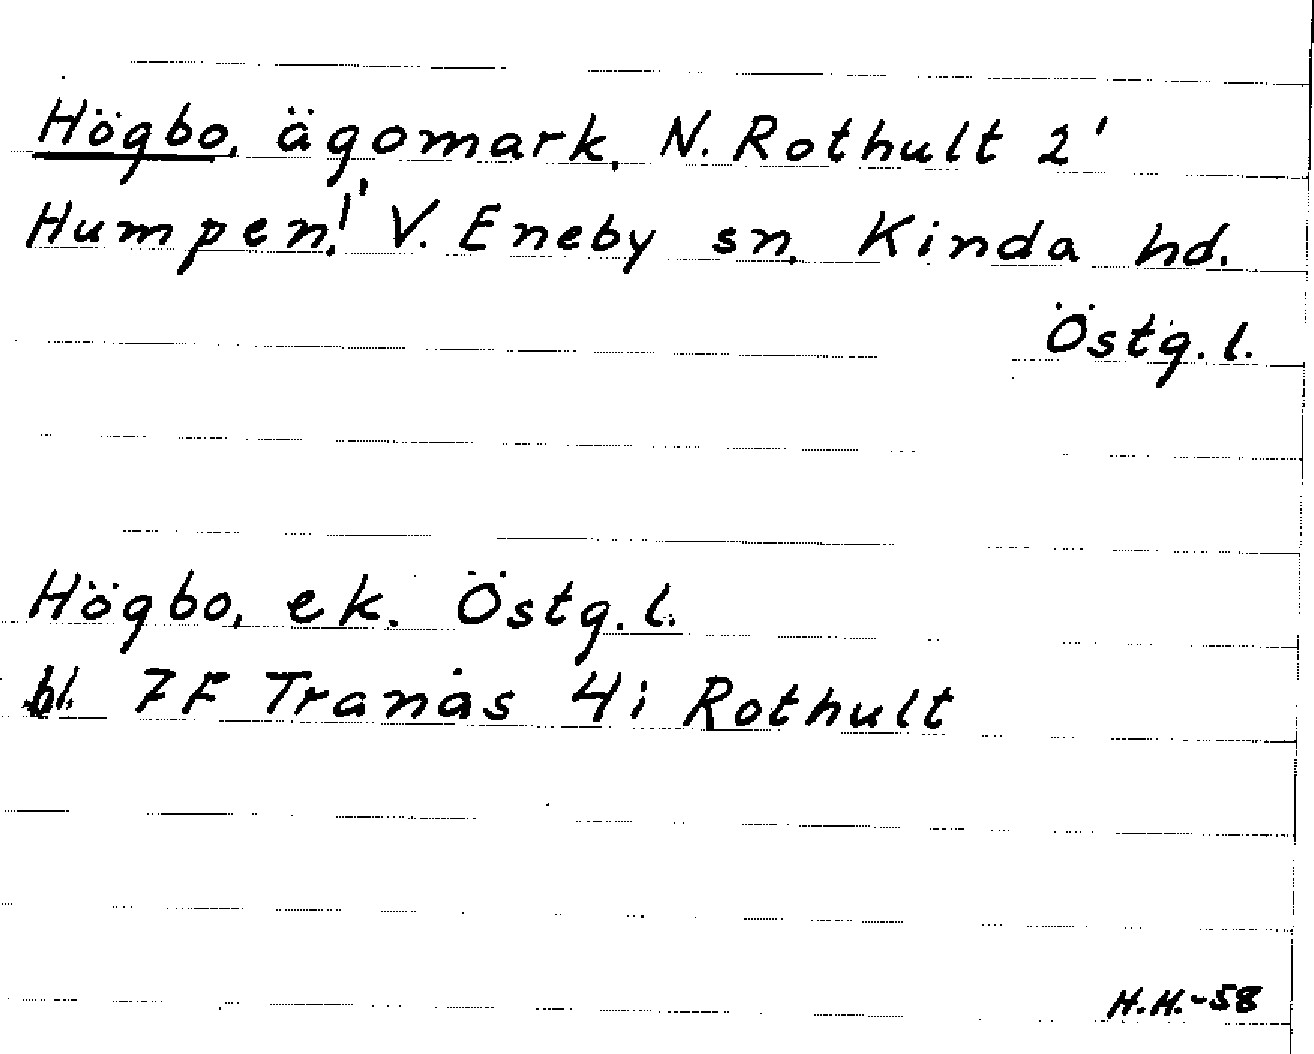 Högbo, ägomark, N. Rothult 2'
Humpen, 1' V. Eneby sn, Kinda hd.
Östg. l.
Högbo, ek. Östg. l.
bl. 7F Tranås 4i Rothult
H.H.-58